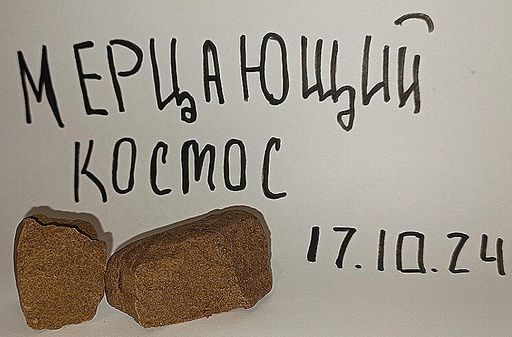 МЕРЦАЮЩИЙ
КОСМОС
17.10.24